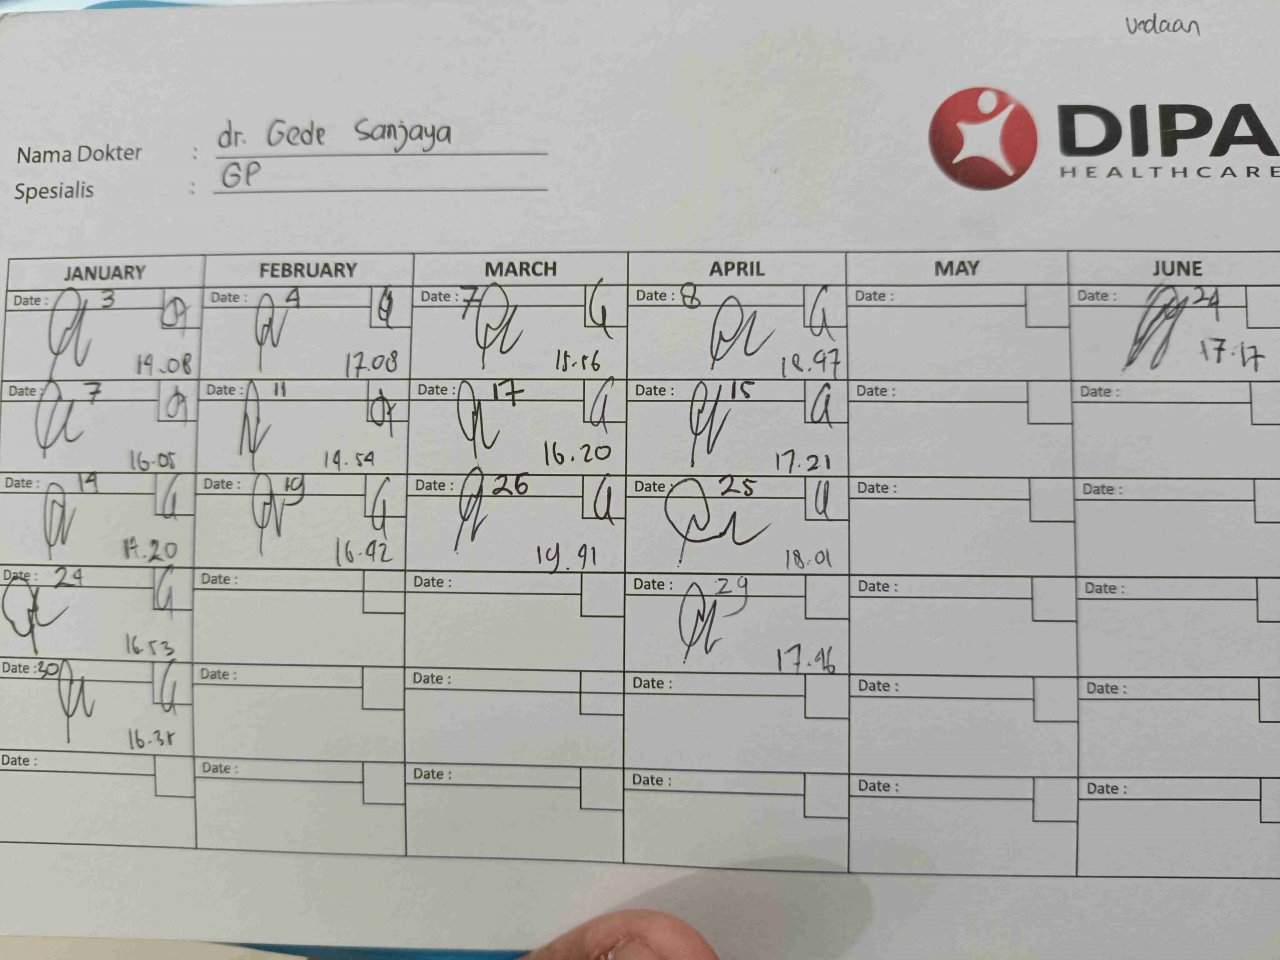 DIPA
HEALTHCARE
Nama Dokter : dr. Gede Sanjaya
Spesialis : GP
JANUARY FEBRUARY MARCH APRIL MAY JUNE
Date : 3 Date : 4 Date : 7 Date : 8 Date : Date : 24
17.08 17.17
Date : 7 Date : 11 Date : 17 Date : 15 Date : Date :
16.05 14.54 16.20 17.21
Date : 14 Date : 19 Date : 26 Date : 25 Date : Date :
17.20 16.42 19.41 18.01
Date : 24 Date : Date : Date : 29 Date : Date :
16.53 17.46
Date : 30 Date : Date : Date : Date : Date :
Date : Date : Date : Date : Date : Date :